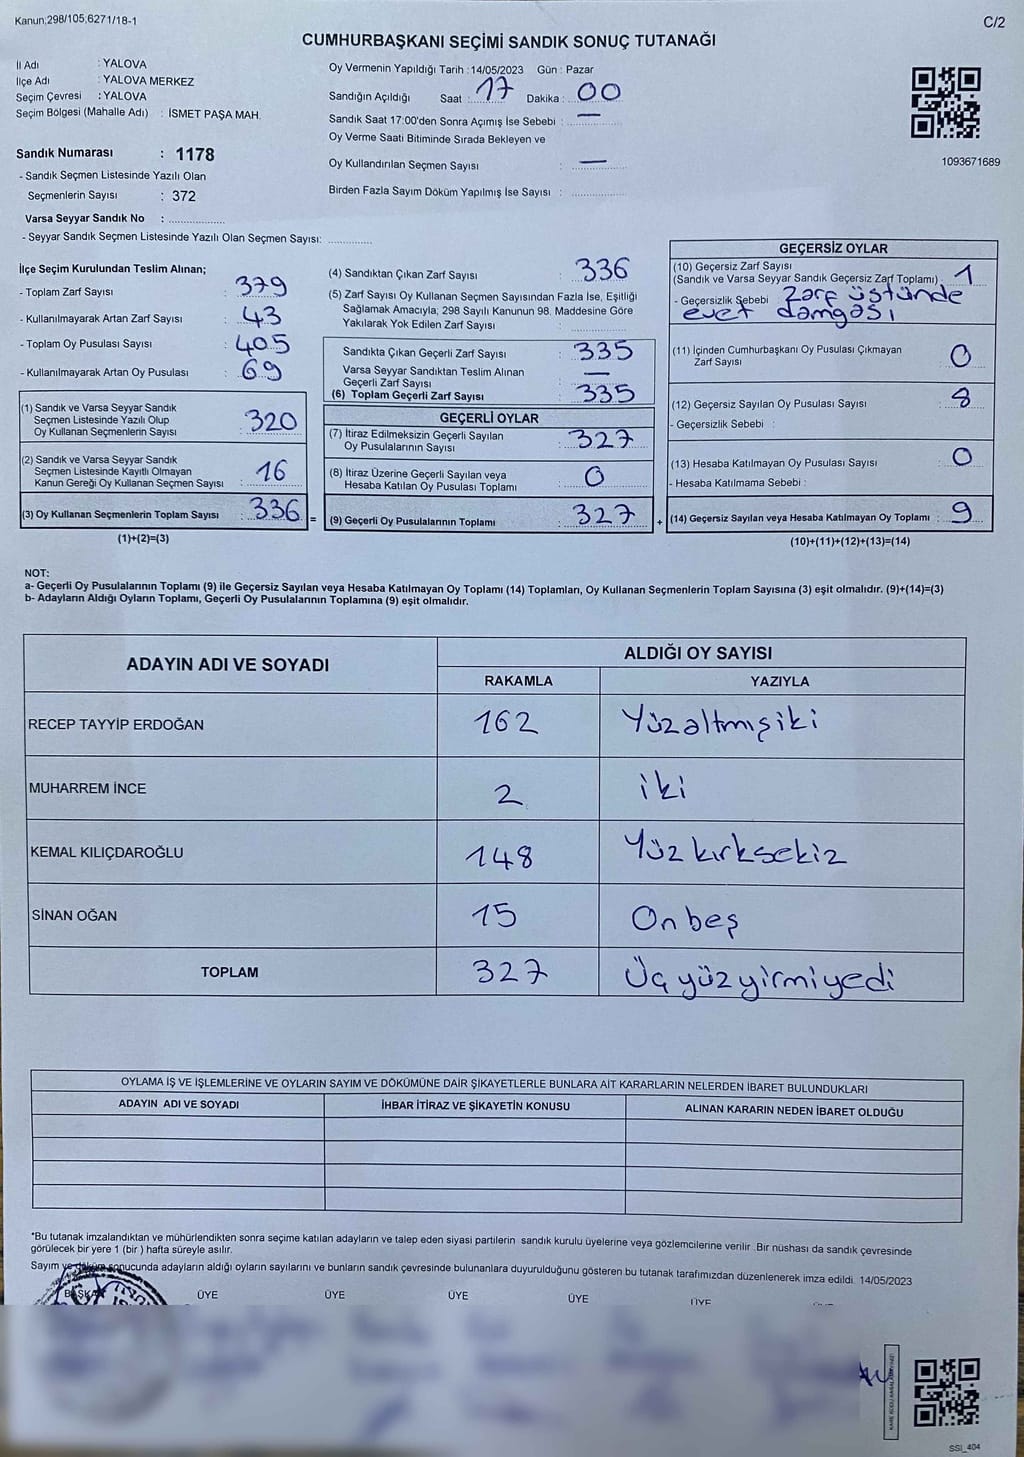 Kanun;298/105,6271/18-1
C/2
CUMHURBAŞKANI SEÇİMİ SANDIK SONUÇ TUTANAĞI
İl Adı : YALOVA
İlçe Adı : YALOVA MERKEZ
Seçim Çevresi : YALOVA
Seçim Bölgesi (Mahalle Adı) : İSMET PAŞA MAH.
Sandık Numarası : 1178
- Sandık Seçmen Listesinde Yazılı Olan
Seçmenlerin Sayısı : 372
Varsa Seyyar Sandık No : ................
- Seyyar Sandık Seçmen Listesinde Yazılı Olan Seçmen Sayısı: .............
Oy Vermenin Yapıldığı Tarih : 14/05/2023 Gün : Pazar
Sandığın Açıldığı Saat : 17 Dakika : 00
Sandık Saat 17:00'den Sonra Açımış İse Sebebi : —
Oy Verme Saati Bitiminde Sırada Bekleyen ve
Oy Kullandırılan Seçmen Sayısı : —
Birden Fazla Sayım Döküm Yapılmış İse Sayısı : ................
1093671689
İlçe Seçim Kurulundan Teslim Alınan;
- Toplam Zarf Sayısı : 379
- Kullanılmayarak Artan Zarf Sayısı : 43
- Toplam Oy Pusulası Sayısı : 405
- Kullanılmayarak Artan Oy Pusulası : 69
(1) Sandık ve Varsa Seyyar Sandık
Seçmen Listesinde Yazılı Olup
Oy Kullanan Seçmenlerin Sayısı : 320
(2) Sandık ve Varsa Seyyar Sandık
Seçmen Listesinde Kayıtlı Olmayan
Kanun Gereği Oy Kullanan Seçmen Sayısı : 16
(3) Oy Kullanan Seçmenlerin Toplam Sayısı : 336
(1)+(2)=(3)
=
(4) Sandıktan Çıkan Zarf Sayısı : 336
(5) Zarf Sayısı Oy Kullanan Seçmen Sayısından Fazla İse, Eşitliği
Sağlamak Amacıyla; 298 Sayılı Kanunun 98. Maddesine Göre
Yakılarak Yok Edilen Zarf Sayısı : ................
Sandıkta Çıkan Geçerli Zarf Sayısı : 335
Varsa Seyyar Sandıktan Teslim Alınan
Geçerli Zarf Sayısı : —
(6) Toplam Geçerli Zarf Sayısı : 335
GEÇERLİ OYLAR
(7) İtiraz Edilmeksizin Geçerli Sayılan
Oy Pusulalarının Sayısı : 327
(8) İtiraz Üzerine Geçerli Sayılan veya
Hesaba Katılan Oy Pusulası Toplamı : 0
(9) Geçerli Oy Pusulalarının Toplamı : 327
+
GEÇERSİZ OYLAR
(10) Geçersiz Zarf Sayısı
(Sandık ve Varsa Seyyar Sandık Geçersiz Zarf Toplamı) : 1
- Geçersizlik Sebebi : Zarf üstünde
evet damgası
(11) İçinden Cumhurbaşkanı Oy Pusulası Çıkmayan
Zarf Sayısı : 0
(12) Geçersiz Sayılan Oy Pusulası Sayısı : 8
- Geçersizlik Sebebi :
(13) Hesaba Katılmayan Oy Pusulası Sayısı : 0
- Hesaba Katılmama Sebebi :
(14) Geçersiz Sayılan veya Hesaba Katılmayan Oy Toplamı : 9
(10)+(11)+(12)+(13)=(14)
NOT:
a- Geçerli Oy Pusulalarının Toplamı (9) ile Geçersiz Sayılan veya Hesaba Katılmayan Oy Toplamı (14) Toplamları, Oy Kullanan Seçmenlerin Toplam Sayısına (3) eşit olmalıdır. (9)+(14)=(3)
b- Adayların Aldığı Oyların Toplamı, Geçerli Oy Pusulalarının Toplamına (9) eşit olmalıdır.
ADAYIN ADI VE SOYADI
ALDIĞI OY SAYISI
RAKAMLA YAZIYLA
RECEP TAYYİP ERDOĞAN 162 Yüzaltmışiki
MUHARREM İNCE 2 iki
KEMAL KILIÇDAROĞLU 148 Yüz kırksekiz
SİNAN OĞAN 15 On beş
TOPLAM 327 Üç yüz yirmi yedi
OYLAMA İŞ VE İŞLEMLERİNE VE OYLARIN SAYIM VE DÖKÜMÜNE DAİR ŞİKAYETLERLE BUNLARA AİT KARARLARIN NELERDEN İBARET BULUNDUKLARI
ADAYIN ADI VE SOYADI İHBAR İTİRAZ VE ŞİKAYETİN KONUSU ALINAN KARARIN NEDEN İBARET OLDUĞU
*Bu tutanak imzalandıktan ve mühürlendikten sonra seçime katılan adayların ve talep eden siyasi partilerin sandık kurulu üyelerine veya gözlemcilerine verilir. Bir nüshası da sandık çevresinde
görülecek bir yere 1 (bir ) hafta süreyle asılır.
Sayım ve döküm sonucunda adayların aldığı oyların sayılarını ve bunların sandık çevresinde bulunanlara duyurulduğunu gösteren bu tutanak tarafımızdan düzenlenerek imza edildi. 14/05/2023
BAŞKAN ÜYE ÜYE ÜYE ÜYE ÜYE ÜYE
SSI_404